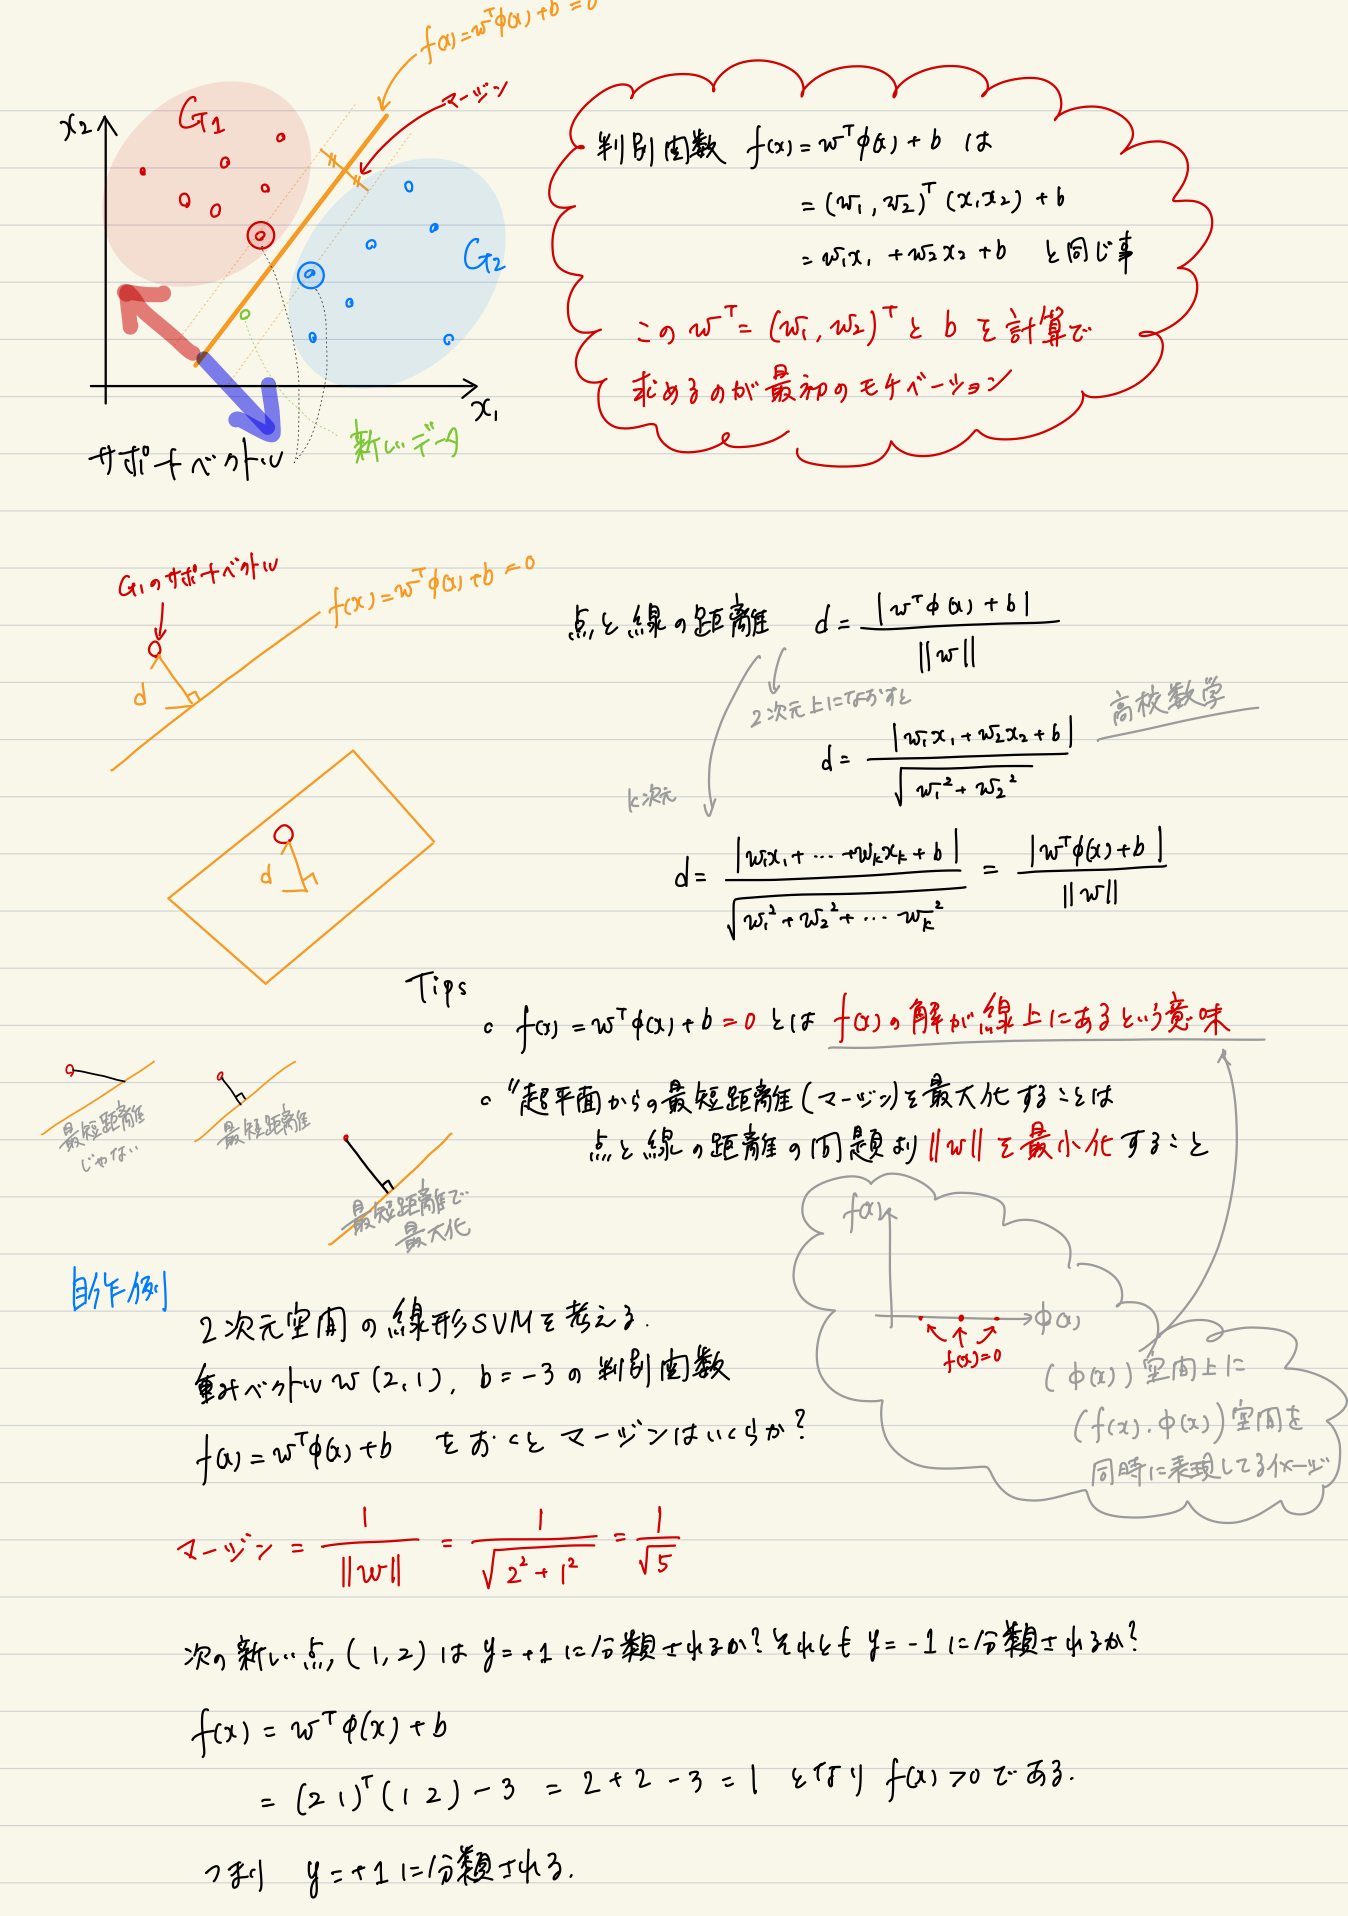 f(x)=w^Tφ(x)+b=0
マージン
x₂
G₁
G₂
x₁
サポートベクトル
新しいデータ
判別関数 f(x)=w^Tφ(x)+b は
=(w₁,w₂)^T(x₁x₂)+b
=w₁x₁+w₂x₂+b と同じ事
この w^T=(w₁,w₂)^T と b を計算で
求めるのが最初のモチベーション
G₁のサポートベクトル
f(x)=w^Tφ(x)+b=0
d
点と線の距離 d = |w^Tφ(x)+b| / ||w||
2次元上になおすと
高校数学
d = |w₁x₁+w₂x₂+b| / √(w₁²+w₂²)
k次元
d
d = |w₁x₁+…+w_kx_k+b| / √(w₁²+w₂²+…w_k²) = |w^Tφ(x)+b| / ||w||
Tips
○ f(x)=w^Tφ(x)+b=0 とは f(x)の解が線上にあるという意味
○ "超平面からの最短距離(マージン)を最大化することは
点と線の距離の問題より ||w|| を最小化すること
最短距離
じゃない
最短距離
最短距離で
最大化
f(x)
φ(x)
f(x)=0
(φ(x))空間上に
(f(x).φ(x))空間を
同時に表現してるイメージ
自作例
2次元空間の線形SVMを考える.
重みベクトル w(2,1), b=-3 の判別関数
f(x)=w^Tφ(x)+b をおくとマージンはいくらか?
マージン = 1/||w|| = 1/√(2²+1²) = 1/√5
次の新しい点,(1,2)は y=+1に分類されるか?それとも y=-1に分類されるか?
f(x)=w^Tφ(x)+b
=(2 1)^T(1 2)-3 = 2+2-3=1 となり f(x)>0である.
つまり y=+1に分類される.